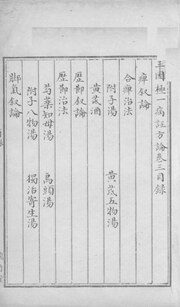 三因極一病證方論卷三目錄
痺叙論
合痺治法
附子湯
黄芪五物湯
黄芪酒
歷節叙論
歷節治法
芍藥知母湯
烏頭湯
附子八物湯
獨治寄生湯
脚氣叙論